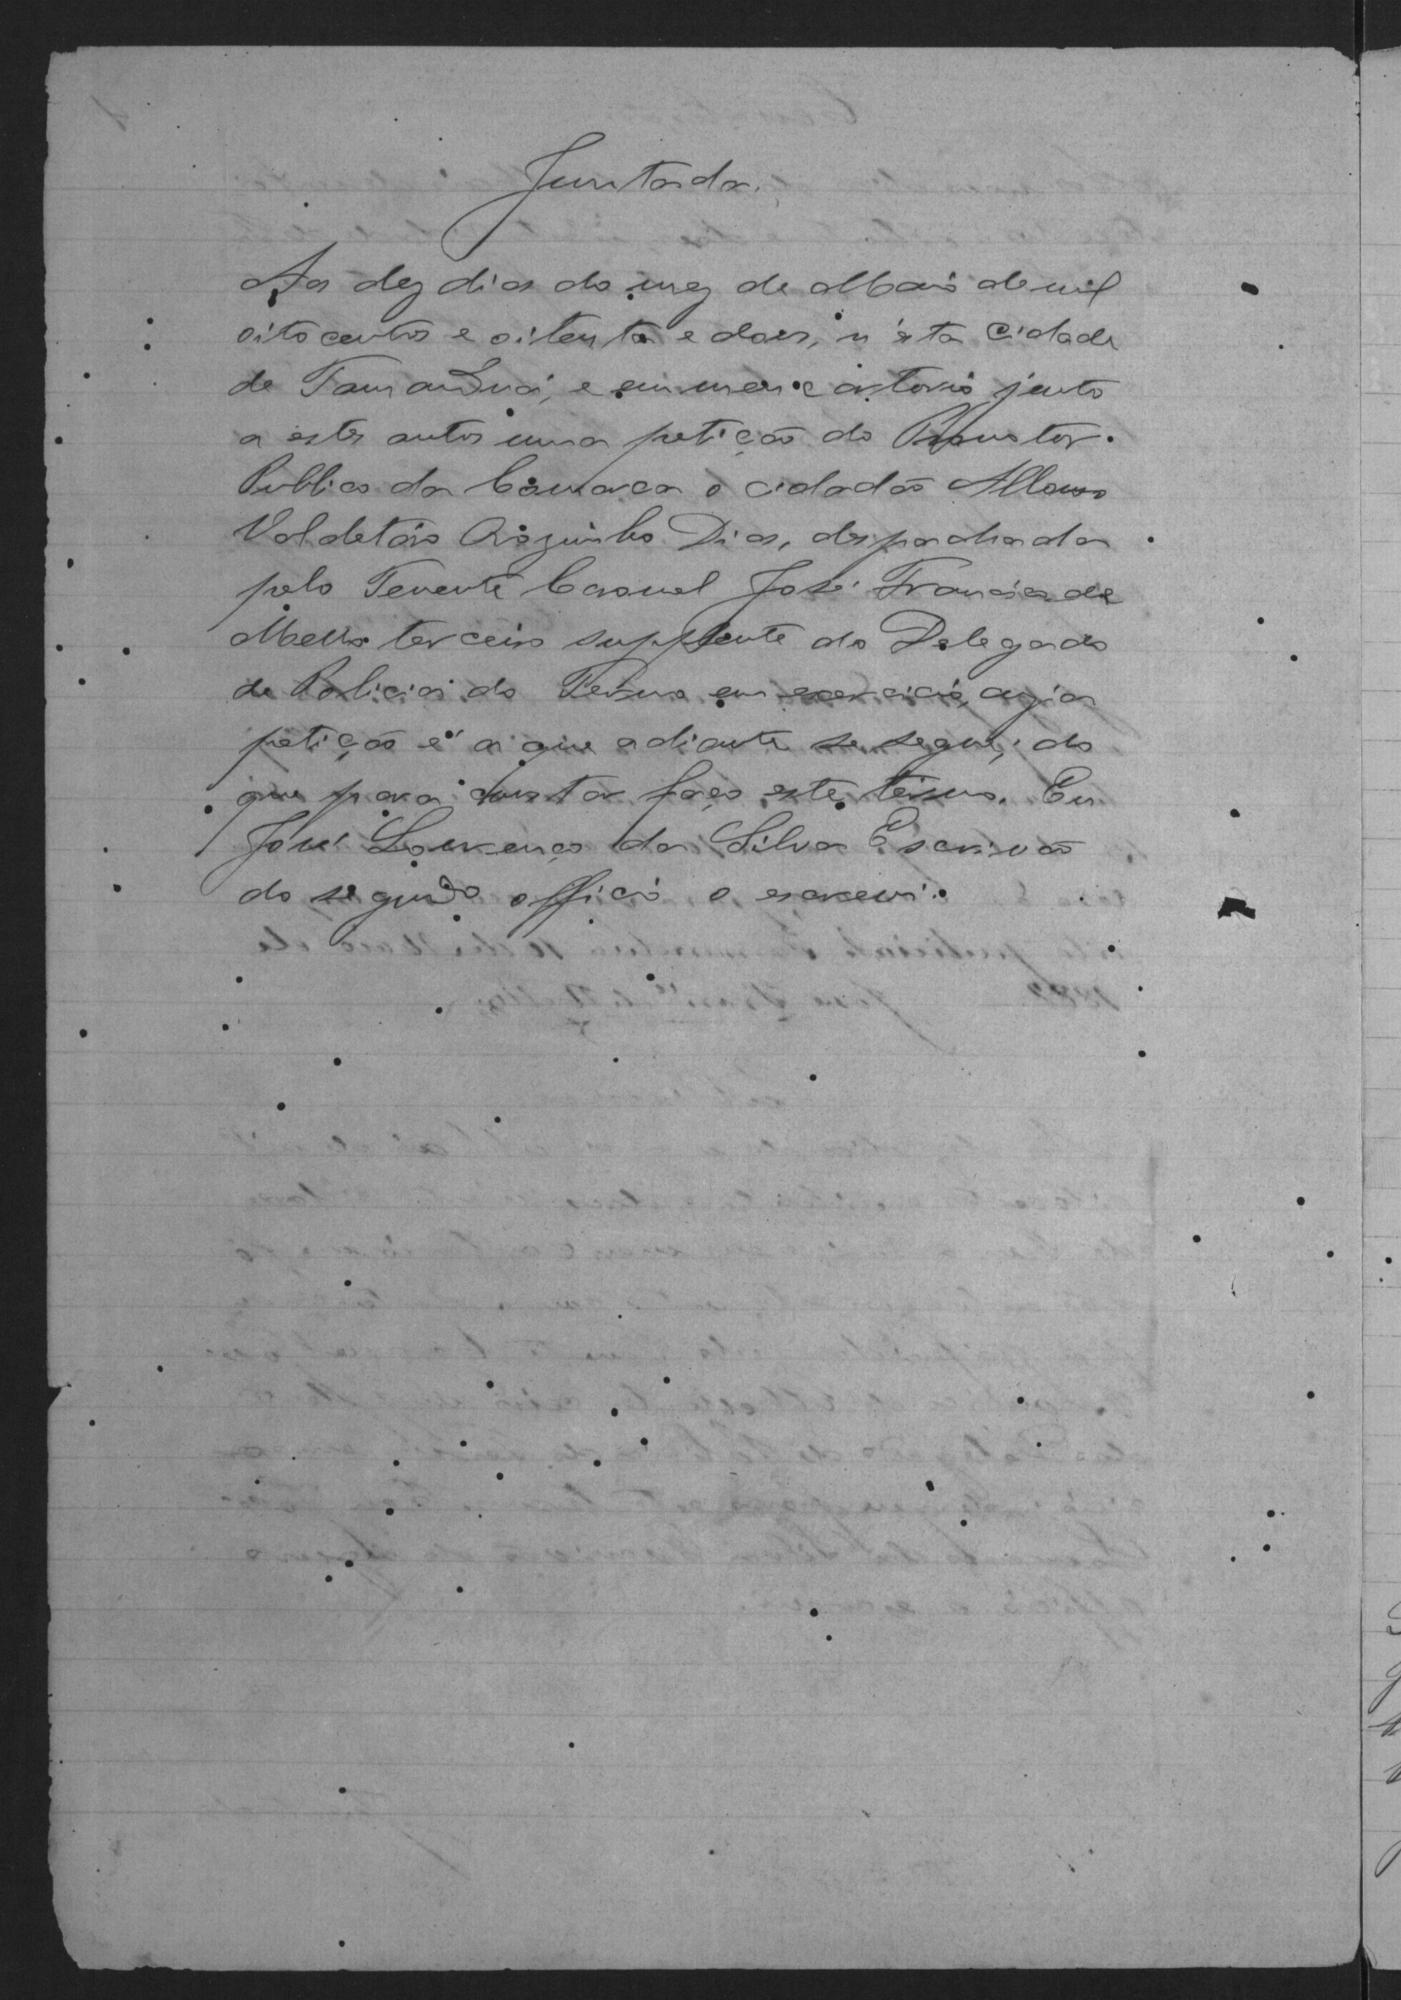 Juntada.
Aos dez dias do mez de Maio de mil
oito centos e oitenta e dous, n'esta Cidade
de Tamanduá, e em meu cartorio junto
a estes autos uma petição do Promotor
Publico da Comarca o cidadão
Valdetáro Dias, despachada
pelo Tenente Coronel José Francisco de
Mello terceiro supplente do Delegado
de Policia do Termo em exercicio, cuja
petição é a que adiante se segue, do
que para constar faço este termo. Eu
José Lourenço da Silva Escrivão
do segundo officio o escrevi.